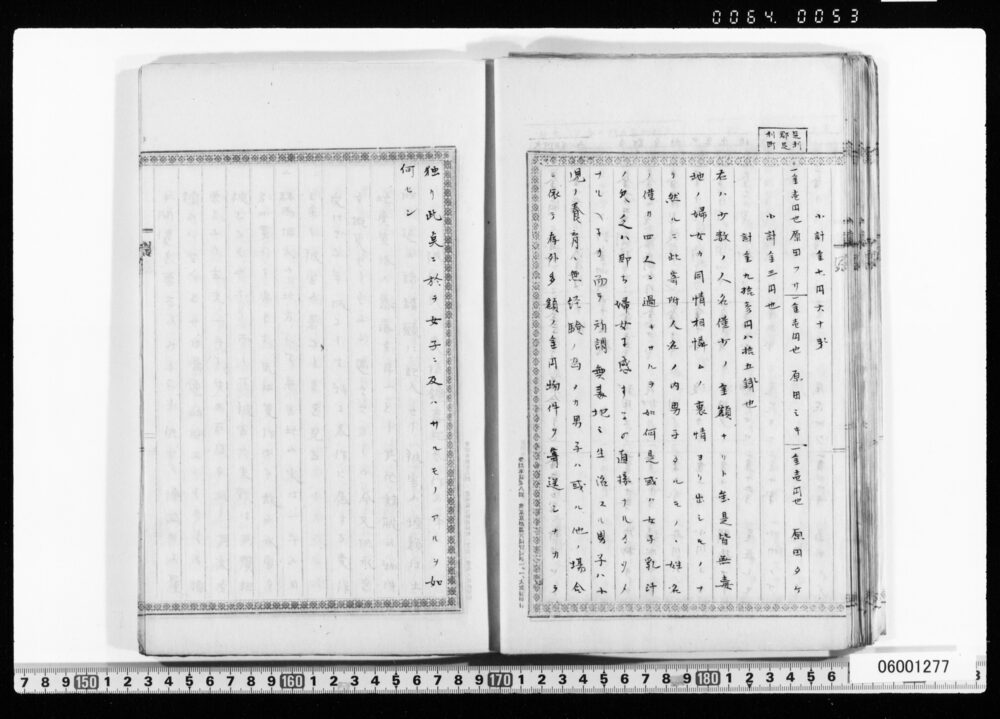 0064.0053
足利
郡足
利町
小計金七円六十戔
一金壱円也 原田フリ 一金壱円也 原田ミキ 一金壱円也 原田タケ
小計金三円也
計金九拾参円八拾五銭也
右ハ少数ノ人名僅少ノ金額ナリト雖是皆無毒
地ノ婦女カ同情相憐ムノ裏情ヨリ出シモノナ
リ然ルニ此寄附人名ノ内男子タルモノノ姓名
ノ僅カ四人ニ過キサルヲ如何是或ハ女子乳汁
ノ欠乏ハ即ち婦女子感するの直様ナル
ナル 而テ 所謂無毒地ニ生活スル男子ハ小
児ノ養育ニ無経験ノ為メカ男子ハ或ル他ノ場合
ニ依テ存外多額ノ金円物件ヲ寄送シナカラ
独り此真ニ於テ女子ニ及ハサルモノアルヲ如
何セン
06001277
7 8 9 150 1 2 3 4 5 6 7 8 9 160 1 2 3 4 5 6 7 8 9 170 1 2 3 4 5 6 7 8 9 180 1 2 3 4 5 6